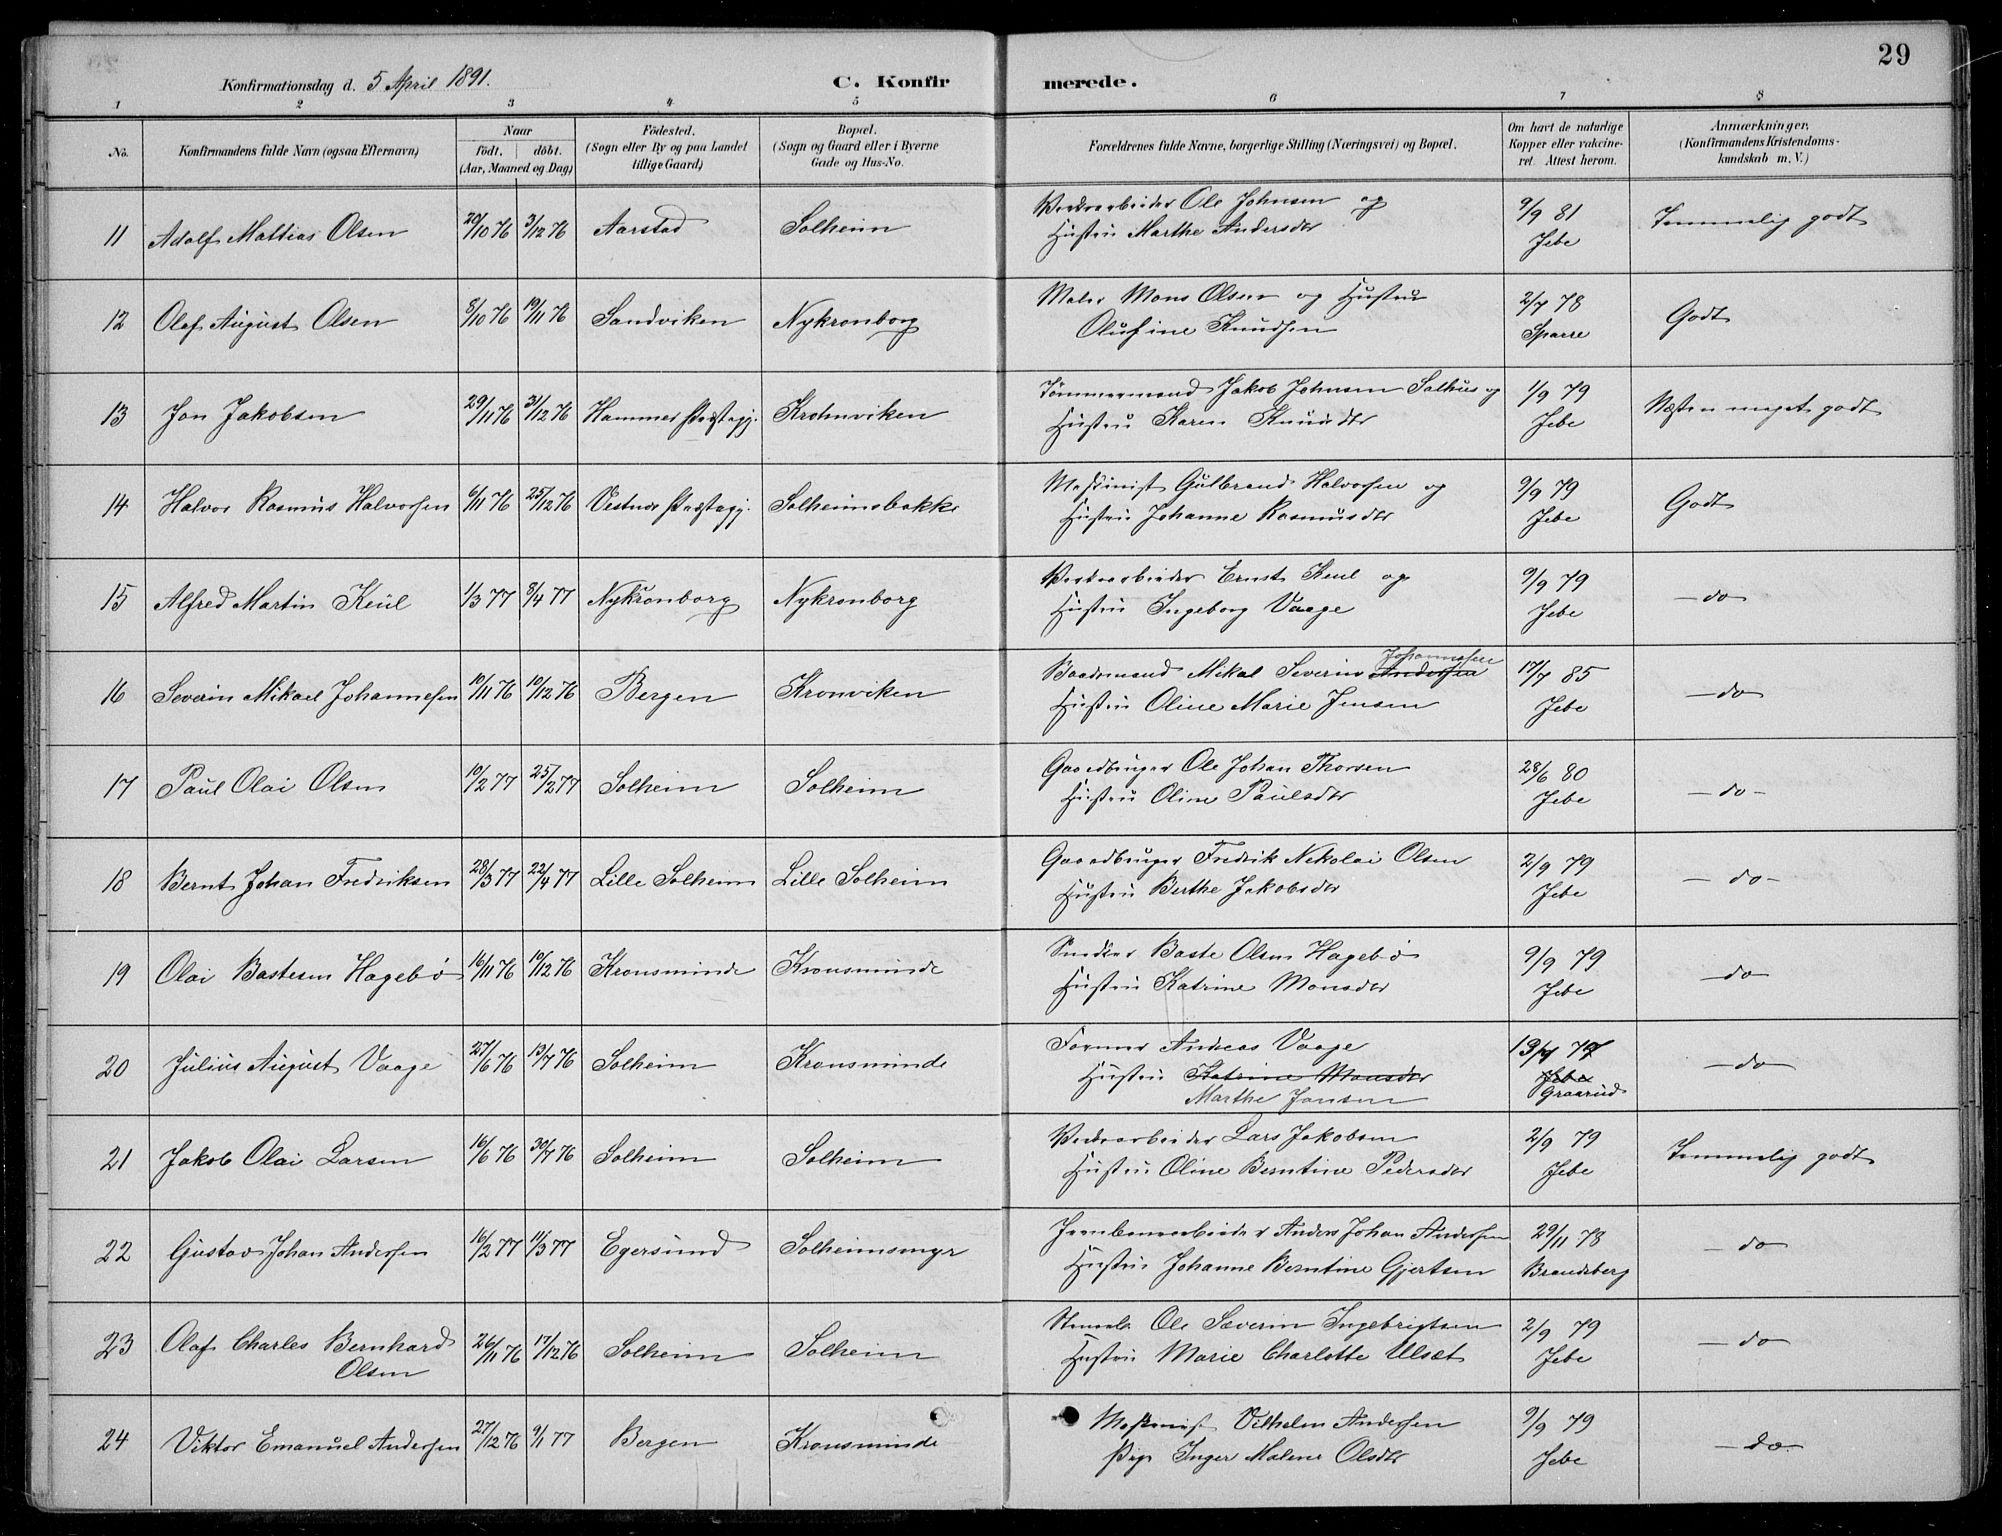 29
Konfirmationsdag d. 5 April 1891.
C. Konfirmerede.
1 2 3 4 5 6 7 8
No.
Konfirmandens fulde Navn (ogsaa Efternavn)
Naar
födt. döbt.
(Aar, Maaned og Dag)
Födested.
(Sogn eller By og paa Landet
tillige Gaard)
Bopæl.
(Sogn og Gaard eller i Byerne
Gade og Hus-No.
Forældrenes fulde Navne, borgerlige Stilling (Næringsvei) og Bopæl.
Om havt de naturlige
Kopper eller vakcine-
ret. Attest herom.
Anmærkninger,
(Konfirmandens Kristendoms-
kundskab m. V.)
11 Adolf Mattias Olsen 29/10 76 3/12 76 Aarstad Solheim
Verksarbeider Ole Johnsen og
Hustru Marthe Andersdtr
9/9 81
Jebe
Temmelig godt
12 Olaf August Olsen 8/10 76 19/11 76 Sandviken Nykronborg
Maler Mons Olsen og Hustru
Olufine Knudsen
2/7 78
Sparre
Godt
13 Jon Jakobsen 29/11 76 31/12 76 Hammer Præstegj. Krohnviken
Tömmermand Jakob Johnsen Salhus og
Hustru Karen Knudsdtr
1/9 79
Jebe
Næsten meget godt
14 Halvor Rasmus Halvorsen 6/11 76 25/12 76 Vestnæs Præstegj. Solheimsbakke
Maskinist Gulbrand Halvorsen og
Hustru Johanne Rasmusdtr
9/9 79
Jebe
Godt
15 Alfred Martin Keul 1/3 77 8/4 77 Nykronborg Nykronborg
Verksarbeider Ernst Keul og
Hustru Ingeborg Vaage
9/9 79
Jebe
- do -
16 Severin Mikael Johannesen 10/11 76 10/12 76 Bergen Kronviken
Baadsmand Mikal Severin Andersen Johannesen
Hustru Oline Marie Jensen
17/7 85
Jebe
- do
17 Paul Olai Olsen 10/2 77 25/2 77 Solheim Solheim
Gaardbruger Ole Johan Thorsen
Hustru Oline Paulsdtr
28/6 80
Jebe
- do -
18 Bernt Johan Fredriksen 28/3 77 22/4 77 Lille Solheim Lille Solheim
Gaardbruger Fredrik Nikolai Olsen
Hustru Berthe Jakobsdtr
2/9 79
Jebe
- do -
19 Olai Bastesen Hagebö 16/11 76 10/12 76 Kronsminde Kronsminde
Snedker Baste Olsen Hagebö
Hustru Katrine Monsdtr
9/9 79
Jebe
- do -
20 Julius August Vaage 27/6 76 13/7 76 Solheim Kronsminde
Former Andreas Vaage
Hustru Katrine Monsdtr
Marthe Jansen
13/7 77
Jebe
Graarud
- do -
21 Jakob Olai Larsen 16/6 76 30/7 76 Solheim Solheim
Verksarbeider Lars Jakobsen
Hustru Oline Berntine Pedersdtr
2/9 79
Jebe
Temmelig godt
22 Gustav Johan Andersen 16/2 77 11/3 77 Egersund Solheimsmyr
Jernbanearbeider Anders Johan Andersen
Hustru Johanne Berntine Gjertsen
29/11 78
Brandsberg
- do
23 Olaf Charles Bernhard
Olsen 26/11 76 17/12 76 Solheim Solheim
Ole Severin Ingebrigtsen
Hustru Marie Charlotte Ulset
2/9 79
Jebe
- do -
24 Viktor Emanuel Andersen 27/12 76 9/1 77 Bergen Kronsminde
Maskinist Vilhelm Andersen
Pige Inger Malene Olsdtr
9/9 79
Jebe
- do -